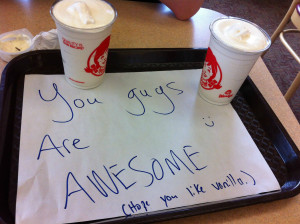 You guys
:)
Are
AWESOME
(Hope you like vanilla.)